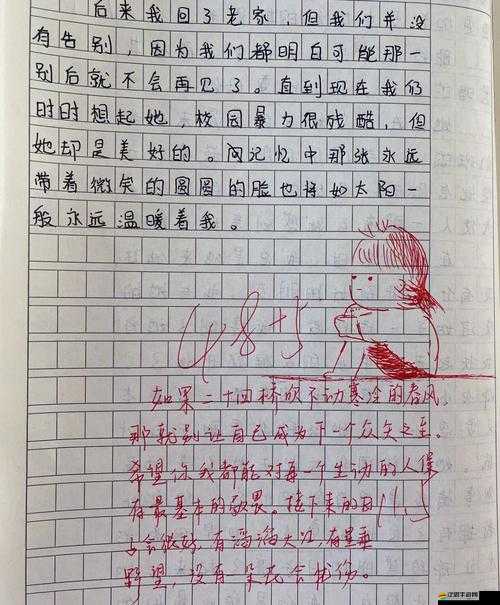 后来我回了老家，但我们并没
有告别，因为我们都明白可能那一
别后就不会再见了。直到现在我仍
时时想起她，校园暴力很残酷，但
她却是美好的。而记忆中那张永远
带着微笑的圆圆的脸也将如太阳一
般永远温暖着我。
48+5
如果二十四桥吹不动寒冷的春风，
那就别让自己成为下一个众矢之至。
希望你我都能对每一个生动的人保
有最基本的敬畏。接下来的日
子会很好，有滔滔大江，有星垂
野望，没有一朵花会忧伤。